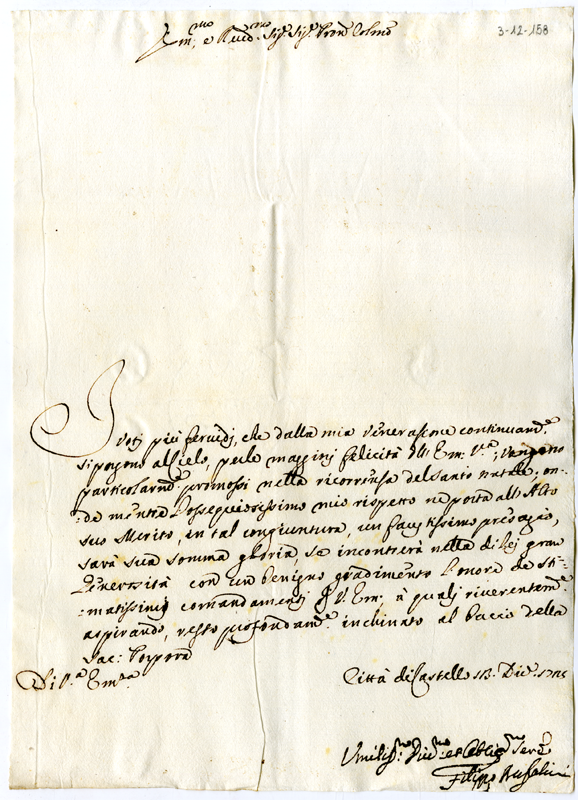 Em.mo e Rev.mo Sig.r Sig.r Pron. Colmo
3-12-158
I Voti più fervidi, che dalla mia Venerazione continuam.te
si porgono al Cielo, per le maggiori felicità dell' Em. V.a, vengono
particolarm.te promossi nella ricorrenza del Santo Natale, on-
:de mentre l'ossequiosissimo mio rispetto ne porta all' Alto
suo Merito, in tal congiuntura, un faustissimo presagio,
sarà sua somma gloria, se incontrerà nella di Lej gran
Generosità con un benigno gradimento l'onore de sti-
:matissimj comandamenti di V. Em. à qualj riverentem.te
aspirando, resto profondam.te inchinato al Bacio della
Sac: Porpora
Di V.a Em.za
Città di Castello 13. Dic.e
Umiliss.mo Div.mo et Obblig.mo Ser.e
Filippo